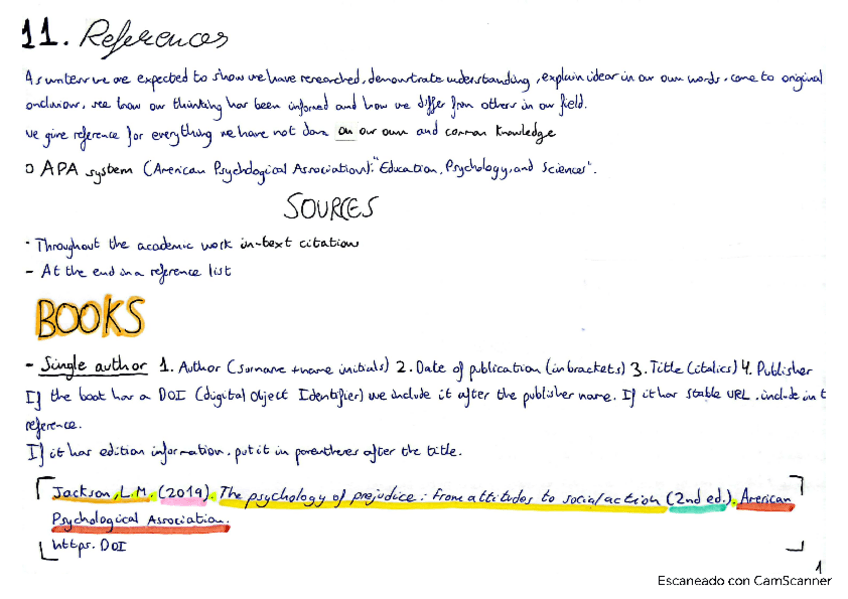 11. References
As writers we are expected to show we have researched, demonstrate understanding, explain ideas in our own words, come to original
conclusions, see how our thinking has been informed and how we differ from others in our field.
We give reference for everything we have not done on our own and common knowledge
APA system (American Psychological Association): "Education, Psychology, and Sciences".
SOURCES
- Throughout the academic work in-text citation
- At the end in a reference list
BOOKS
- Single author 1. Author (surname + name initials) 2. Date of publication (in brackets) 3. Title (italics) 4. Publisher
If the book has a DOI (digital Object Identifier) we include it after the publisher name. If it has stable URL, include in t
reference.
If it has edition information, put it in parentheses after the title.
Jackson, L.M. (2019). The psychology of prejudice: From attitudes to social action (2nd ed.). American
Psychological Association.
https. DOI
1
Escaneado con CamScanner